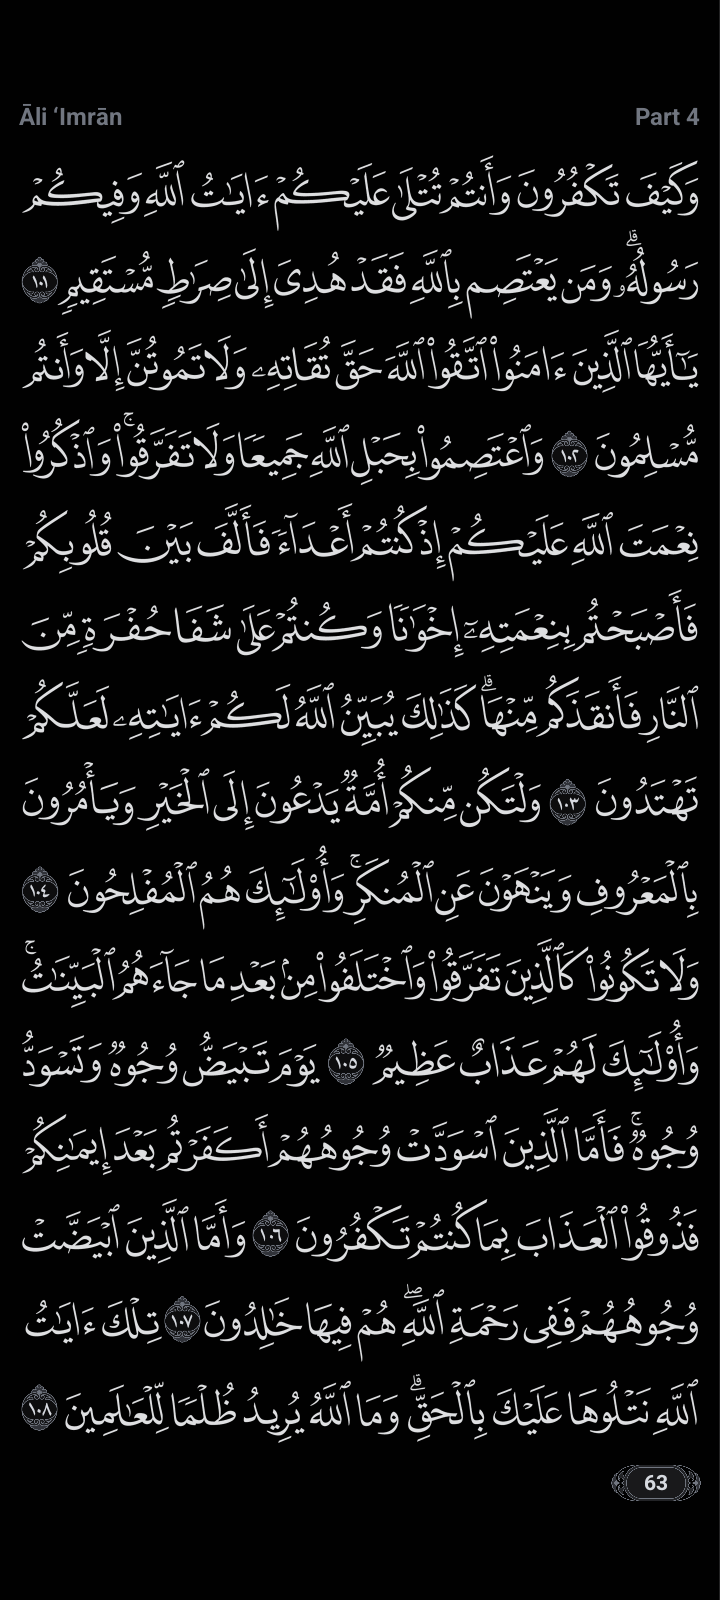 Āli ‘Imrān
Part 4
وَكَيْفَ تَكْفُرُونَ وَأَنتُمْ تُتْلَىٰ عَلَيْكُمْ ءَايَٰتُ ٱللَّهِ وَفِيكُمْ
رَسُولُهُۥ ۗ وَمَن يَعْتَصِم بِٱللَّهِ فَقَدْ هُدِىَ إِلَىٰ صِرَٰطٍ مُّسْتَقِيمٍ ١٠١
يَٰٓأَيُّهَا ٱلَّذِينَ ءَامَنُوا۟ ٱتَّقُوا۟ ٱللَّهَ حَقَّ تُقَاتِهِۦ وَلَا تَمُوتُنَّ إِلَّا وَأَنتُم
مُّسْلِمُونَ ١٠٢ وَٱعْتَصِمُوا۟ بِحَبْلِ ٱللَّهِ جَمِيعًا وَلَا تَفَرَّقُوا۟ ۚ وَٱذْكُرُوا۟
نِعْمَتَ ٱللَّهِ عَلَيْكُمْ إِذْ كُنتُمْ أَعْدَآءً فَأَلَّفَ بَيْنَ قُلُوبِكُمْ
فَأَصْبَحْتُم بِنِعْمَتِهِۦٓ إِخْوَٰنًا وَكُنتُمْ عَلَىٰ شَفَا حُفْرَةٍ مِّنَ
ٱلنَّارِ فَأَنقَذَكُم مِّنْهَا ۗ كَذَٰلِكَ يُبَيِّنُ ٱللَّهُ لَكُمْ ءَايَٰتِهِۦ لَعَلَّكُمْ
تَهْتَدُونَ ١٠٣ وَلْتَكُن مِّنكُمْ أُمَّةٌ يَدْعُونَ إِلَى ٱلْخَيْرِ وَيَأْمُرُونَ
بِٱلْمَعْرُوفِ وَيَنْهَوْنَ عَنِ ٱلْمُنكَرِ ۚ وَأُو۟لَٰٓئِكَ هُمُ ٱلْمُفْلِحُونَ ١٠٤
وَلَا تَكُونُوا۟ كَٱلَّذِينَ تَفَرَّقُوا۟ وَٱخْتَلَفُوا۟ مِنۢ بَعْدِ مَا جَآءَهُمُ ٱلْبَيِّنَٰتُ ۚ
وَأُو۟لَٰٓئِكَ لَهُمْ عَذَابٌ عَظِيمٌ ١٠٥ يَوْمَ تَبْيَضُّ وُجُوهٌ وَتَسْوَدُّ
وُجُوهٌ ۚ فَأَمَّا ٱلَّذِينَ ٱسْوَدَّتْ وُجُوهُهُمْ أَكَفَرْتُم بَعْدَ إِيمَٰنِكُمْ
فَذُوقُوا۟ ٱلْعَذَابَ بِمَا كُنتُمْ تَكْفُرُونَ ١٠٦ وَأَمَّا ٱلَّذِينَ ٱبْيَضَّتْ
وُجُوهُهُمْ فَفِى رَحْمَةِ ٱللَّهِ ۖ هُمْ فِيهَا خَٰلِدُونَ ١٠٧ تِلْكَ ءَايَٰتُ
ٱللَّهِ نَتْلُوهَا عَلَيْكَ بِٱلْحَقِّ ۗ وَمَا ٱللَّهُ يُرِيدُ ظُلْمًا لِّلْعَٰلَمِينَ ١٠٨
63